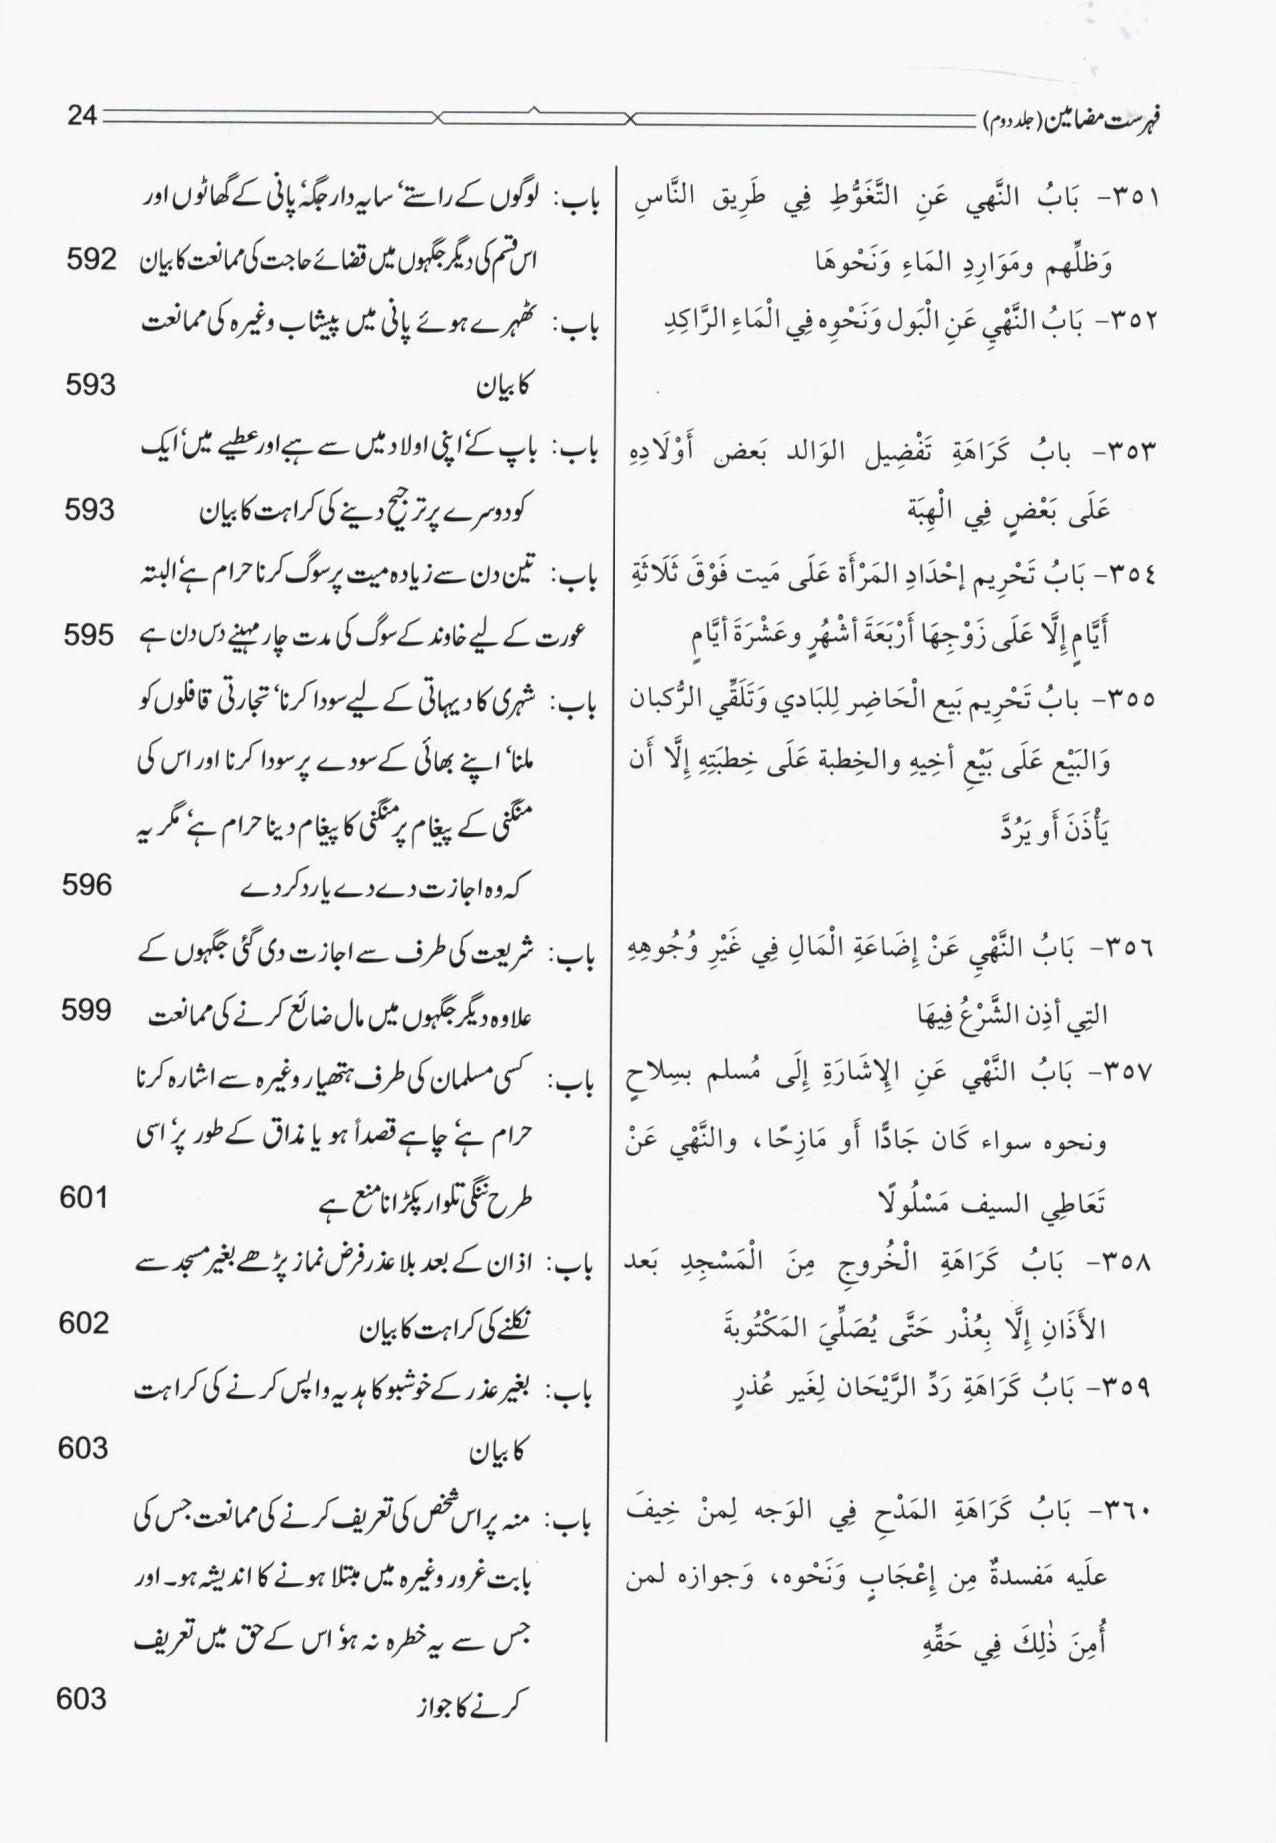 فہرست مضامین (جلد دوم) 24
٣٥١- بَابُ النَّهي عَنِ التَّغَوُّطِ فِي طَرِيق النَّاسِ
وَظلِّهم ومَوَارِدِ المَاءِ وَنَحْوهَا
٣٥٢- بَابُ النَّهْيِ عَنِ الْبَول وَنَحْوِه فِي الْمَاءِ الرَّاكِدِ
٣٥٣- بابُ كَرَاهَةِ تَفْضِيل الوَالد بَعض أَوْلَادِهِ
عَلَى بَعْضٍ فِي الْهِبَة
٣٥٤- بَابُ تَحْرِيم إحْدَادِ المَرْأَة عَلَى مَيت فَوْقَ ثَلَاثَةِ
أَيَّامٍ إِلَّا عَلَى زَوْجِهَا أَرْبَعَةَ أشْهُرٍ وعَشْرَةَ أيَّامٍ
٣٥٥- بابُ تَحْرِيم بَيع الْحَاضِر لِلبَادي وَتَلَقِّي الرُّكبان
وَالبَيْع عَلَى بَيْعِ أخِيهِ والخِطبة عَلَى خِطبَتِهِ إِلَّا أَن
يَأْذَنَ أَو يَرُدَّ
٣٥٦- بَابُ النَّهْيِ عَنْ إِضَاعَةِ الْمَالِ فِي غَيْرِ وُجُوهِهِ
التِي أذِن الشَّرْعُ فِيهَا
٣٥٧- بَابُ النَّهْي عَنِ الإِشَارَةِ إِلَى مُسلم بسِلاحٍ
ونحوه سواء كَان جَادًّا أَو مَازِحًا، والنَّهْي عَنْ
تَعَاطِي السيف مَسْلُولًا
٣٥٨- بَابُ كَرَاهَةِ الْخُروجِ مِنَ الْمَسْجِدِ بَعد
الأَذَانِ إِلَّا بِعُذْر حَتَّى يُصَلِّيَ المَكْتُوبةَ
٣٥٩- بَابُ كَرَاهَةِ رَدِّ الرَّيْحَان لِغَير عُذرٍ
٣٦٠- بَابُ كَرَاهَةِ المَدْحِ فِي الوَجه لِمنْ خِيفَ
علَيه مَفسدةٌ مِن إِعْجَابٍ وَنَحْوه، وَجوازه لمن
أُمِنَ ذٰلِكَ فِي حَقِّهِ
باب: لوگوں کے راستے‘ سایہ دار جگہ‘ پانی کے گھاٹوں اور
اس قسم کی دیگر جگہوں میں قضائے حاجت کی ممانعت کا بیان 592
باب: ٹھہرے ہوئے پانی میں پیشاب وغیرہ کی ممانعت
کا بیان 593
باب: باپ کے‘ اپنی اولاد میں سے ہبے اور عطیے میں‘ ایک
کو دوسرے پر ترجیح دینے کی کراہت کا بیان 593
باب: تین دن سے زیادہ میت پر سوگ کرنا حرام ہے‘ البتہ
عورت کے لیے خاوند کے سوگ کی مدت چار مہینے دس دن ہے 595
باب: شہری کا دیہاتی کے لیے سودا کرنا‘ تجارتی قافلوں کو
ملنا‘ اپنے بھائی کے سودے پر سودا کرنا اور اس کی
منگنی کے پیغام پر منگنی کا پیغام دینا حرام ہے‘ مگر یہ
کہ وہ اجازت دے دے یا رد کر دے 596
باب: شریعت کی طرف سے اجازت دی گئی جگہوں کے
علاوہ دیگر جگہوں میں مال ضائع کرنے کی ممانعت 599
باب: کسی مسلمان کی طرف ہتھیار وغیرہ سے اشارہ کرنا
حرام ہے‘ چاہے قصداً ہو یا مذاق کے طور پر‘ اسی
طرح ننگی تلوار پکڑانا منع ہے 601
باب: اذان کے بعد بلا عذر فرض نماز پڑھے بغیر مسجد سے
نکلنے کی کراہت کا بیان 602
باب: بغیر عذر کے خوشبو کا ہدیہ واپس کرنے کی کراہت
کا بیان 603
باب: منہ پر اس شخص کی تعریف کرنے کی ممانعت جس کی
بابت غرور وغیرہ میں مبتلا ہونے کا اندیشہ ہو۔ اور
جس سے یہ خطرہ نہ ہو‘ اس کے حق میں تعریف
کرنے کا جواز 603